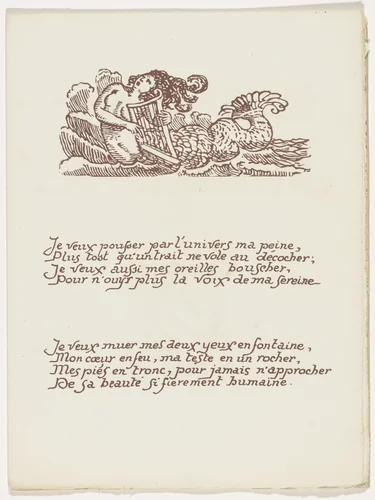 Je veux pousser par l'univers ma peine,
Plus tost qu'un trait ne vole au décocher;
Je veux aussi mes oreilles bouscher,
Pour n'ouyr plus la voix de ma sereine
Je veux muer mes deux yeux en fontaine,
Mon cœur en feu, ma teste en un rocher,
Mes piés en tronc, pour jamais n'approcher
De sa beauté si fierement humaine.